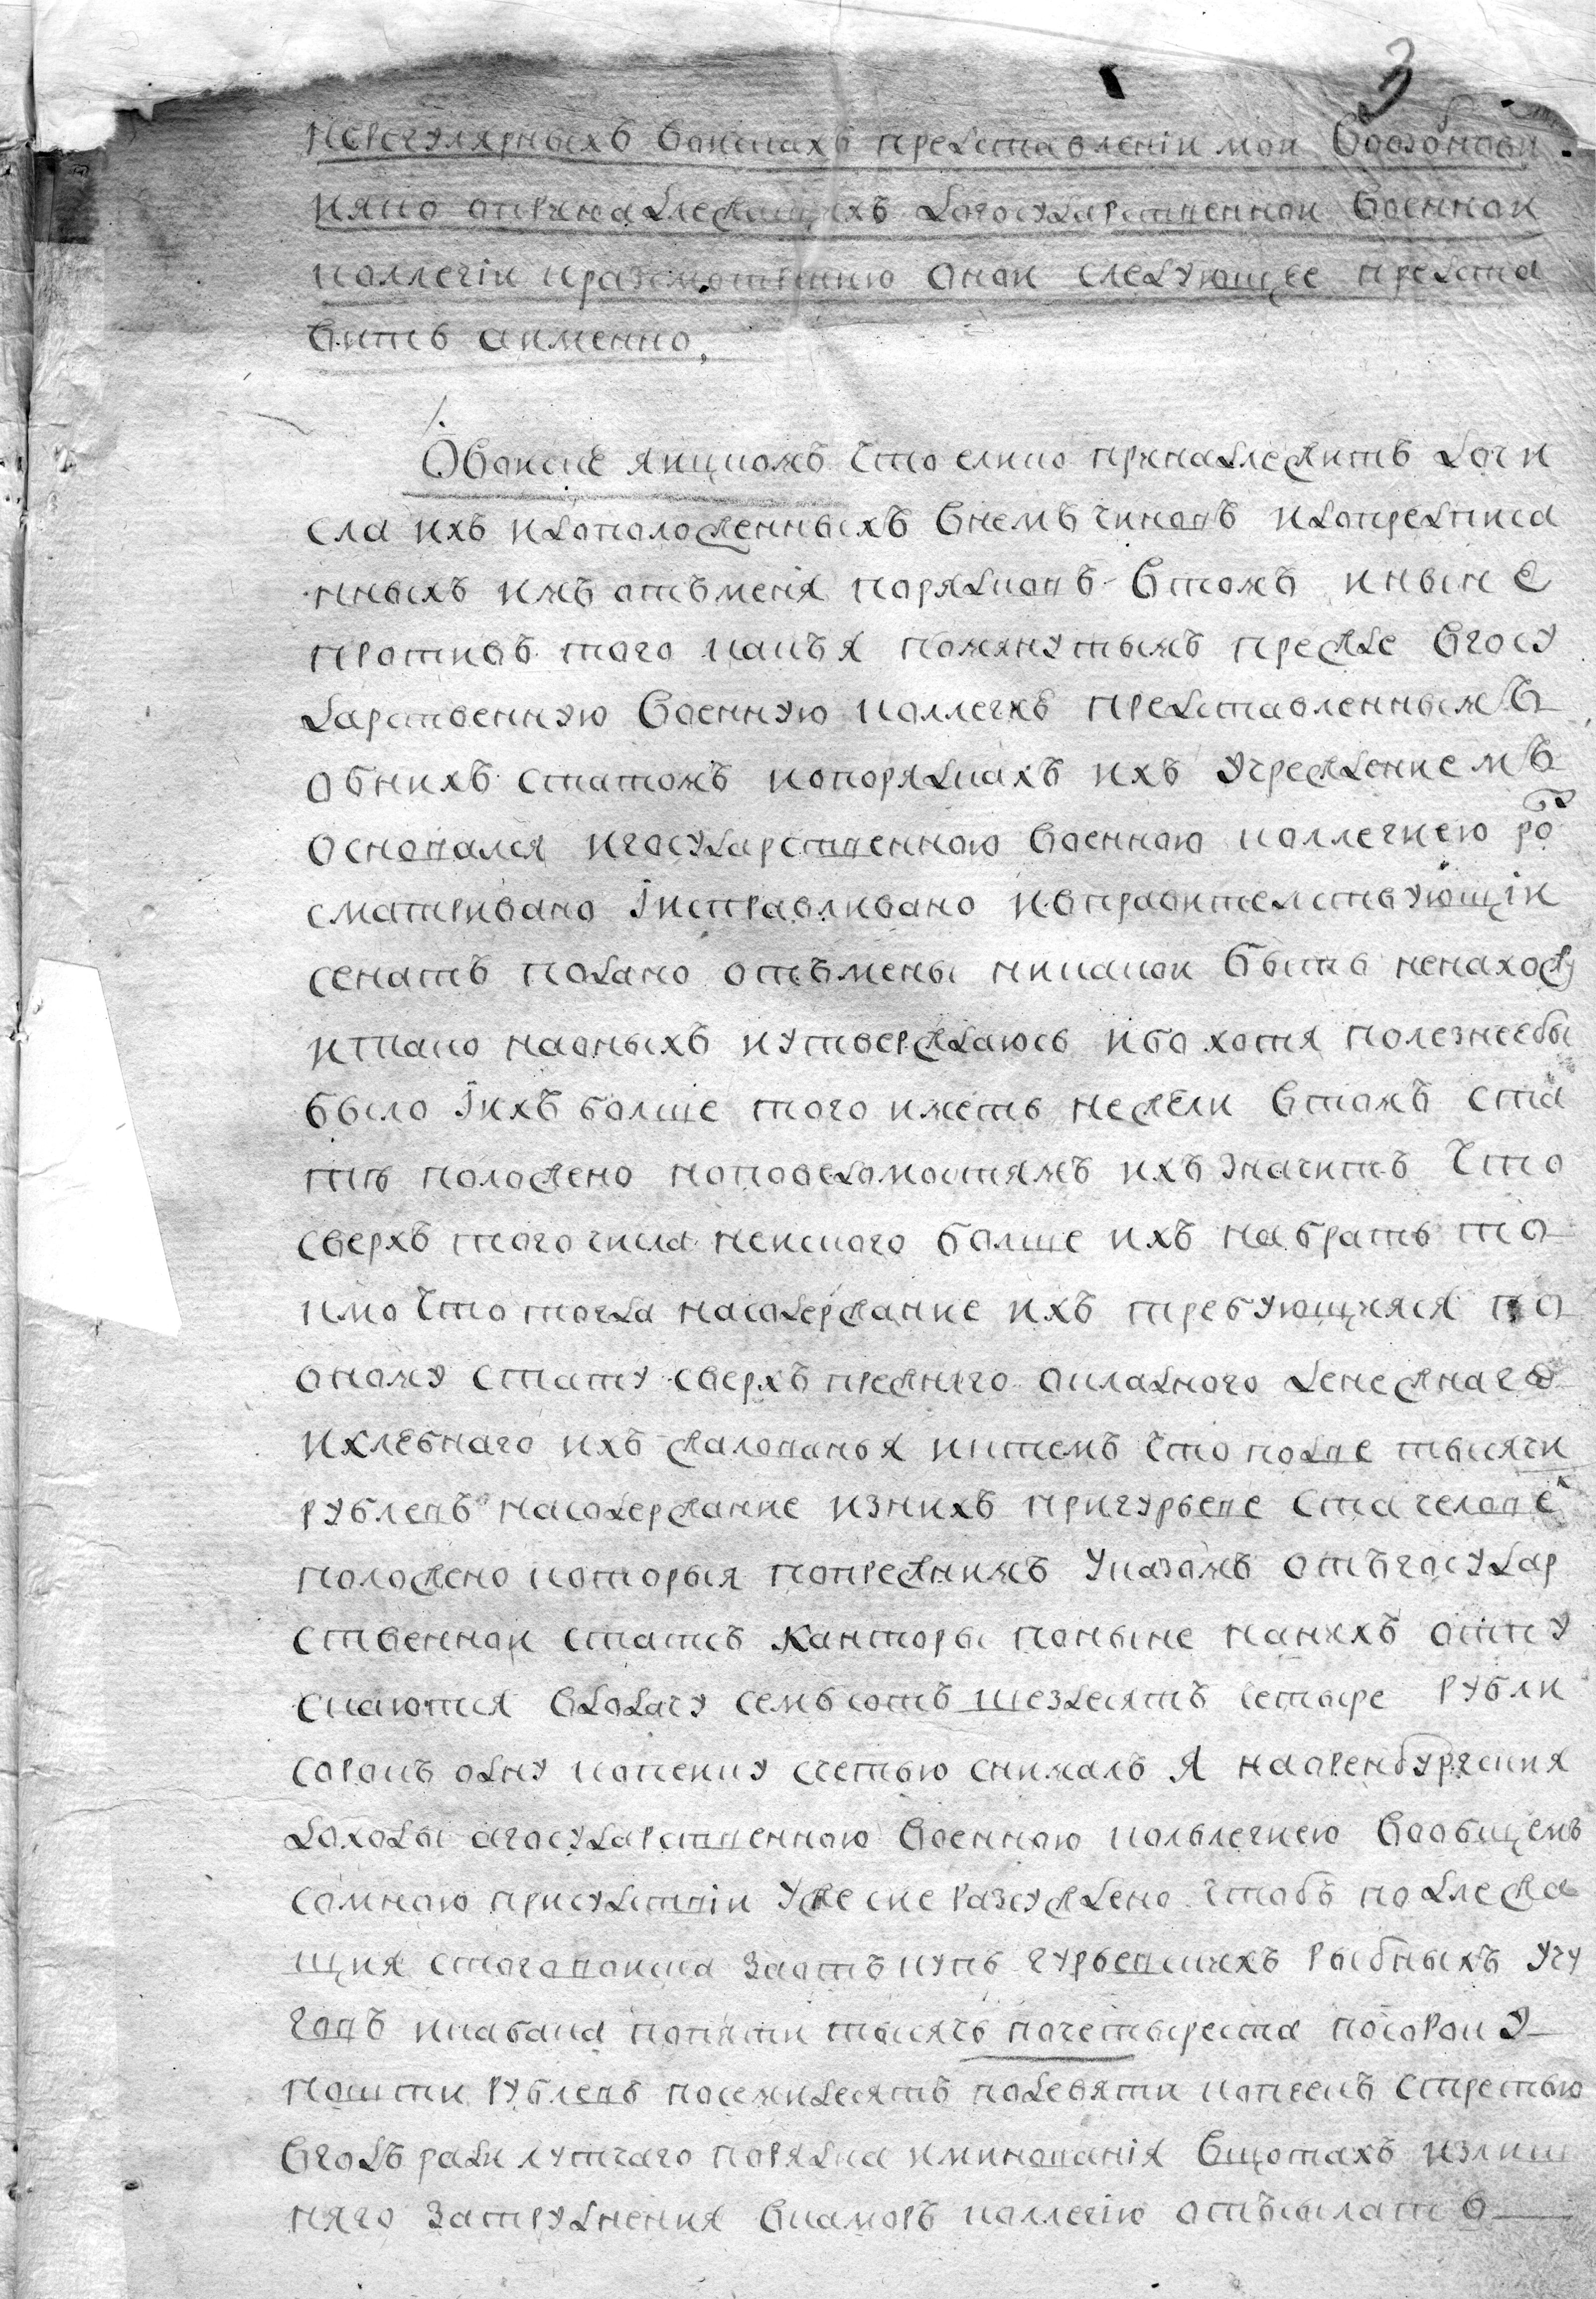 3
нерегулярныхъ воискахъ представлении мои возобнови
няко опринадлежащихъ догосударственнои военнои
коллегіи кразсмотрению онои следующее предста
вить аименно.
1.
Овоиске яицкомъ что елико принадлежитъ дочи
сла ихъ идоположенныхъ внемъ чиновъ идопредписа
нныхъ имъ отъменя порядковъ втомъ иныне
противъ того какъ я помянутымъ прежде вгосу
дарственную военную коллегию представленнымъ
обнихъ статомъ ипопорядкахъ ихъ учреждениемъ
основался игосударственною военною коллегиею ро
сматривано iисправливано ивправительствующіи
сенатъ подано отъмены никакои быть ненахожу
итако наоныхъ иутверждаюсь ибо хотя полезнеебы
было iихъ болше того иметь нежели втомъ ста
тъ положено ноповедомостямъ ихъ значитъ что
сверхъ того числа неизчого болше ихъ набрать то
кмо что тогда насодержание ихъ требующияся по
оному стату сверхъ прежняго окладного денежнаго
ихлебнаго ихъ жалованья иштемъ что подве тысячи
рублевъ насодержание изнихъ пригурьеве ста человѣ
положено которыя попрежнимъ указомъ отъгосудар
ственнои статсъ канторы поныне нанихъ отпу
скаются вдодачу семьсотъ шездесятъ четыре рубли
сорокъ одну копеику счетью снималъ я наоренбургския
доходы агосударственною военною кольлегиею вообщемъ
сомною присудствіи уже сие разсуждено чтобъ подлежа
щия стоговоиска заоткупъ гурьевскихъ рыбныхъ учу
говъ икабака попяти тысячь почетыреста посороку
пошти рублевъ посемидесятъ подевяти копеекъ стретью
вгодъ ради лутчаго порядка иминованія вщотахъ излиш
няго затруднения вкаморъ коллегію отъсылать